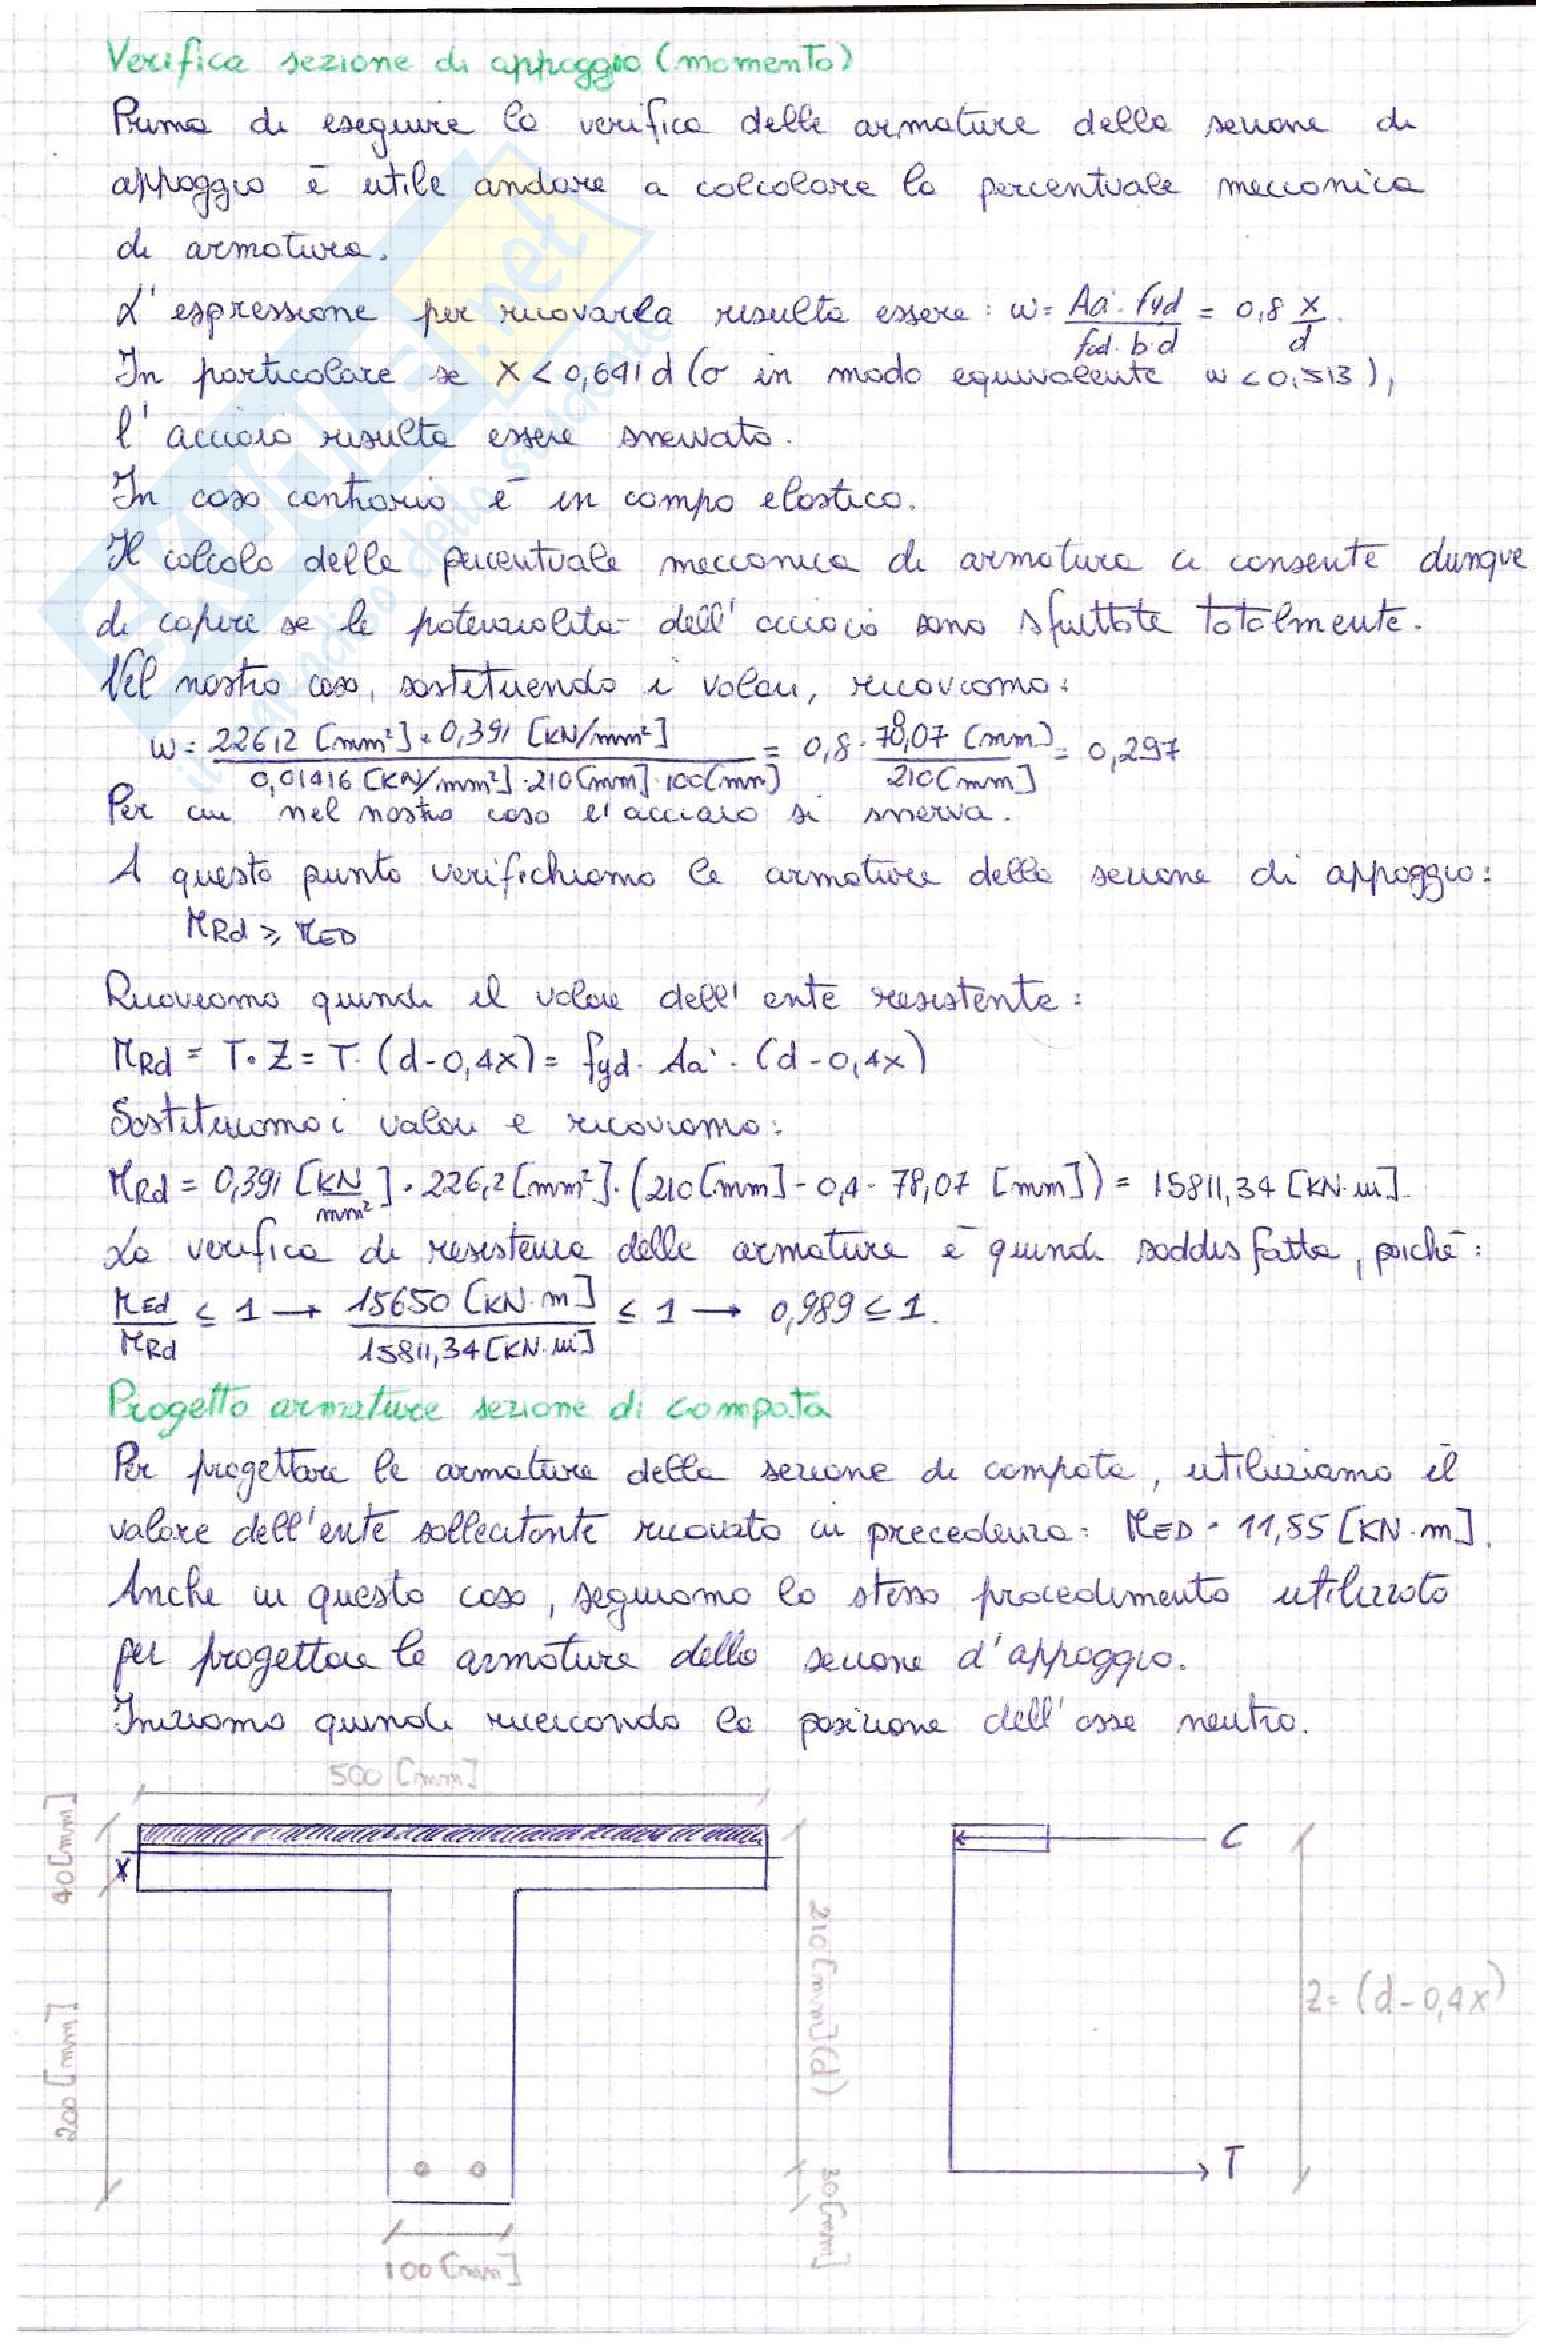 Verifica sezione di appoggio (momento)
Prima di eseguire la verifica delle armature della sezione di
appoggio è utile andare a calcolare la percentuale meccanica
di armatura.
L'espressione per ricavarla risulta essere: w = Aa' · fyd / fcd · b · d = 0,8 x / d.
In particolare se x < 0,641 d (o in modo equivalente w < 0,513),
l'acciaio risulta essere snervato.
In caso contrario è in campo elastico.
Il calcolo della percentuale meccanica di armatura ci consente dunque
di capire se le potenzialità dell'acciaio sono sfruttate totalmente.
Nel nostro caso, sostituendo i valori, ricaviamo:
w = 226,2 [mm²] · 0,391 [KN/mm²] / 0,01416 [KN/mm²] · 210 [mm] · 100 [mm] = 0,8 · 78,07 [mm] / 210 [mm] = 0,297
Per cui nel nostro caso l'acciaio si snerva.
A questo punto verifichiamo le armature della sezione di appoggio:
MRd ≥ MED
Ricaviamo quindi il valore dell'ente resistente:
MRd = T · Z = T · (d - 0,4x) = fyd · Aa' · (d - 0,4x)
Sostituiamo i valori e ricaviamo:
MRd = 0,391 [KN/mm²] · 226,2 [mm²] · (210 [mm] - 0,4 · 78,07 [mm]) = 15811,34 [KN·m].
La verifica di resistenza delle armature è quindi soddisfatta, poichè:
MEd / MRd ≤ 1 → 15650 [KN·m] / 15811,34 [KN·m] ≤ 1 → 0,989 ≤ 1.
Progetto armature sezione di campata
Per progettare le armature della sezione di campata, utilizziamo il
valore dell'ente sollecitante ricavato in precedenza: MED = 11,55 [KN·m].
Anche in questo caso, seguiamo lo stesso procedimento utilizzato
per progettare le armature della sezione d'appoggio.
Iniziamo quindi ricercando la posizione dell'asse neutro.
500 [mm]
40 [mm]
x
C
210 [mm] (d)
Z = (d - 0,4x)
200 [mm]
T
30 [mm]
100 [mm]
SKUOLA.net
il paradiso dello studente